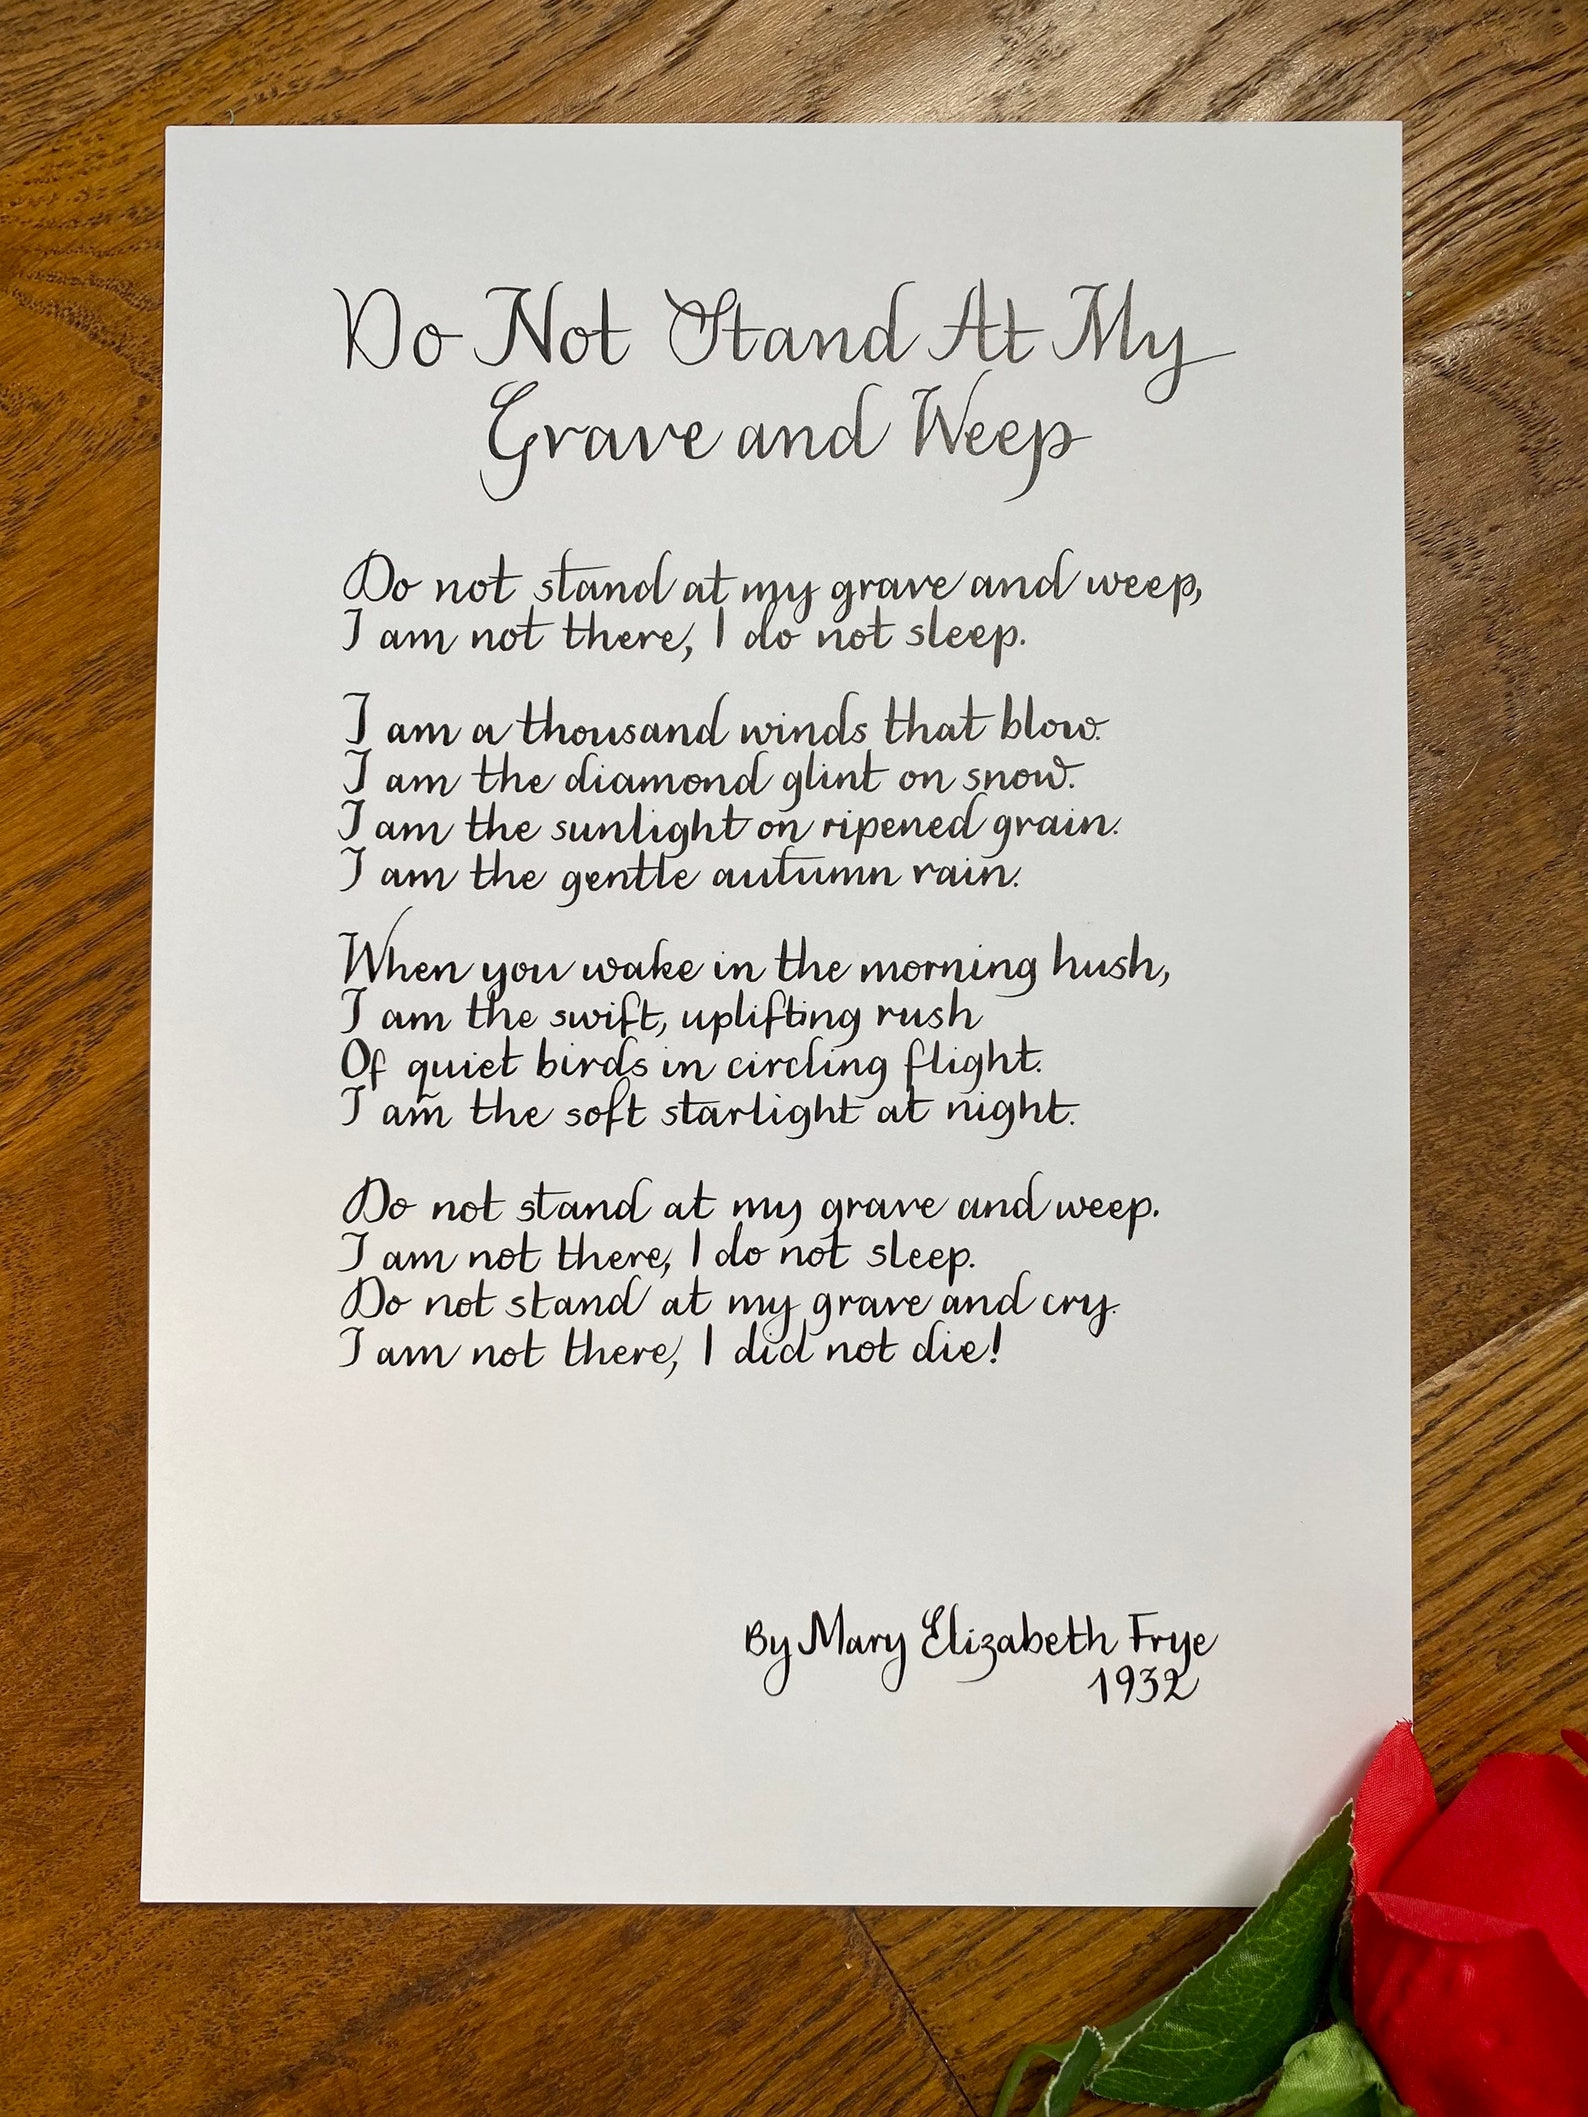 Do Not Stand At My
Grave and Weep
Do not stand at my grave and weep,
I am not there, I do not sleep.
I am a thousand winds that blow.
I am the diamond glint on snow.
I am the sunlight on ripened grain.
I am the gentle autumn rain.
When you wake in the morning hush,
I am the swift, uplifting rush
Of quiet birds in circling flight.
I am the soft starlight at night.
Do not stand at my grave and weep.
I am not there, I do not sleep.
Do not stand at my grave and cry.
I am not there, I did not die!
By Mary Elizabeth Frye
1932